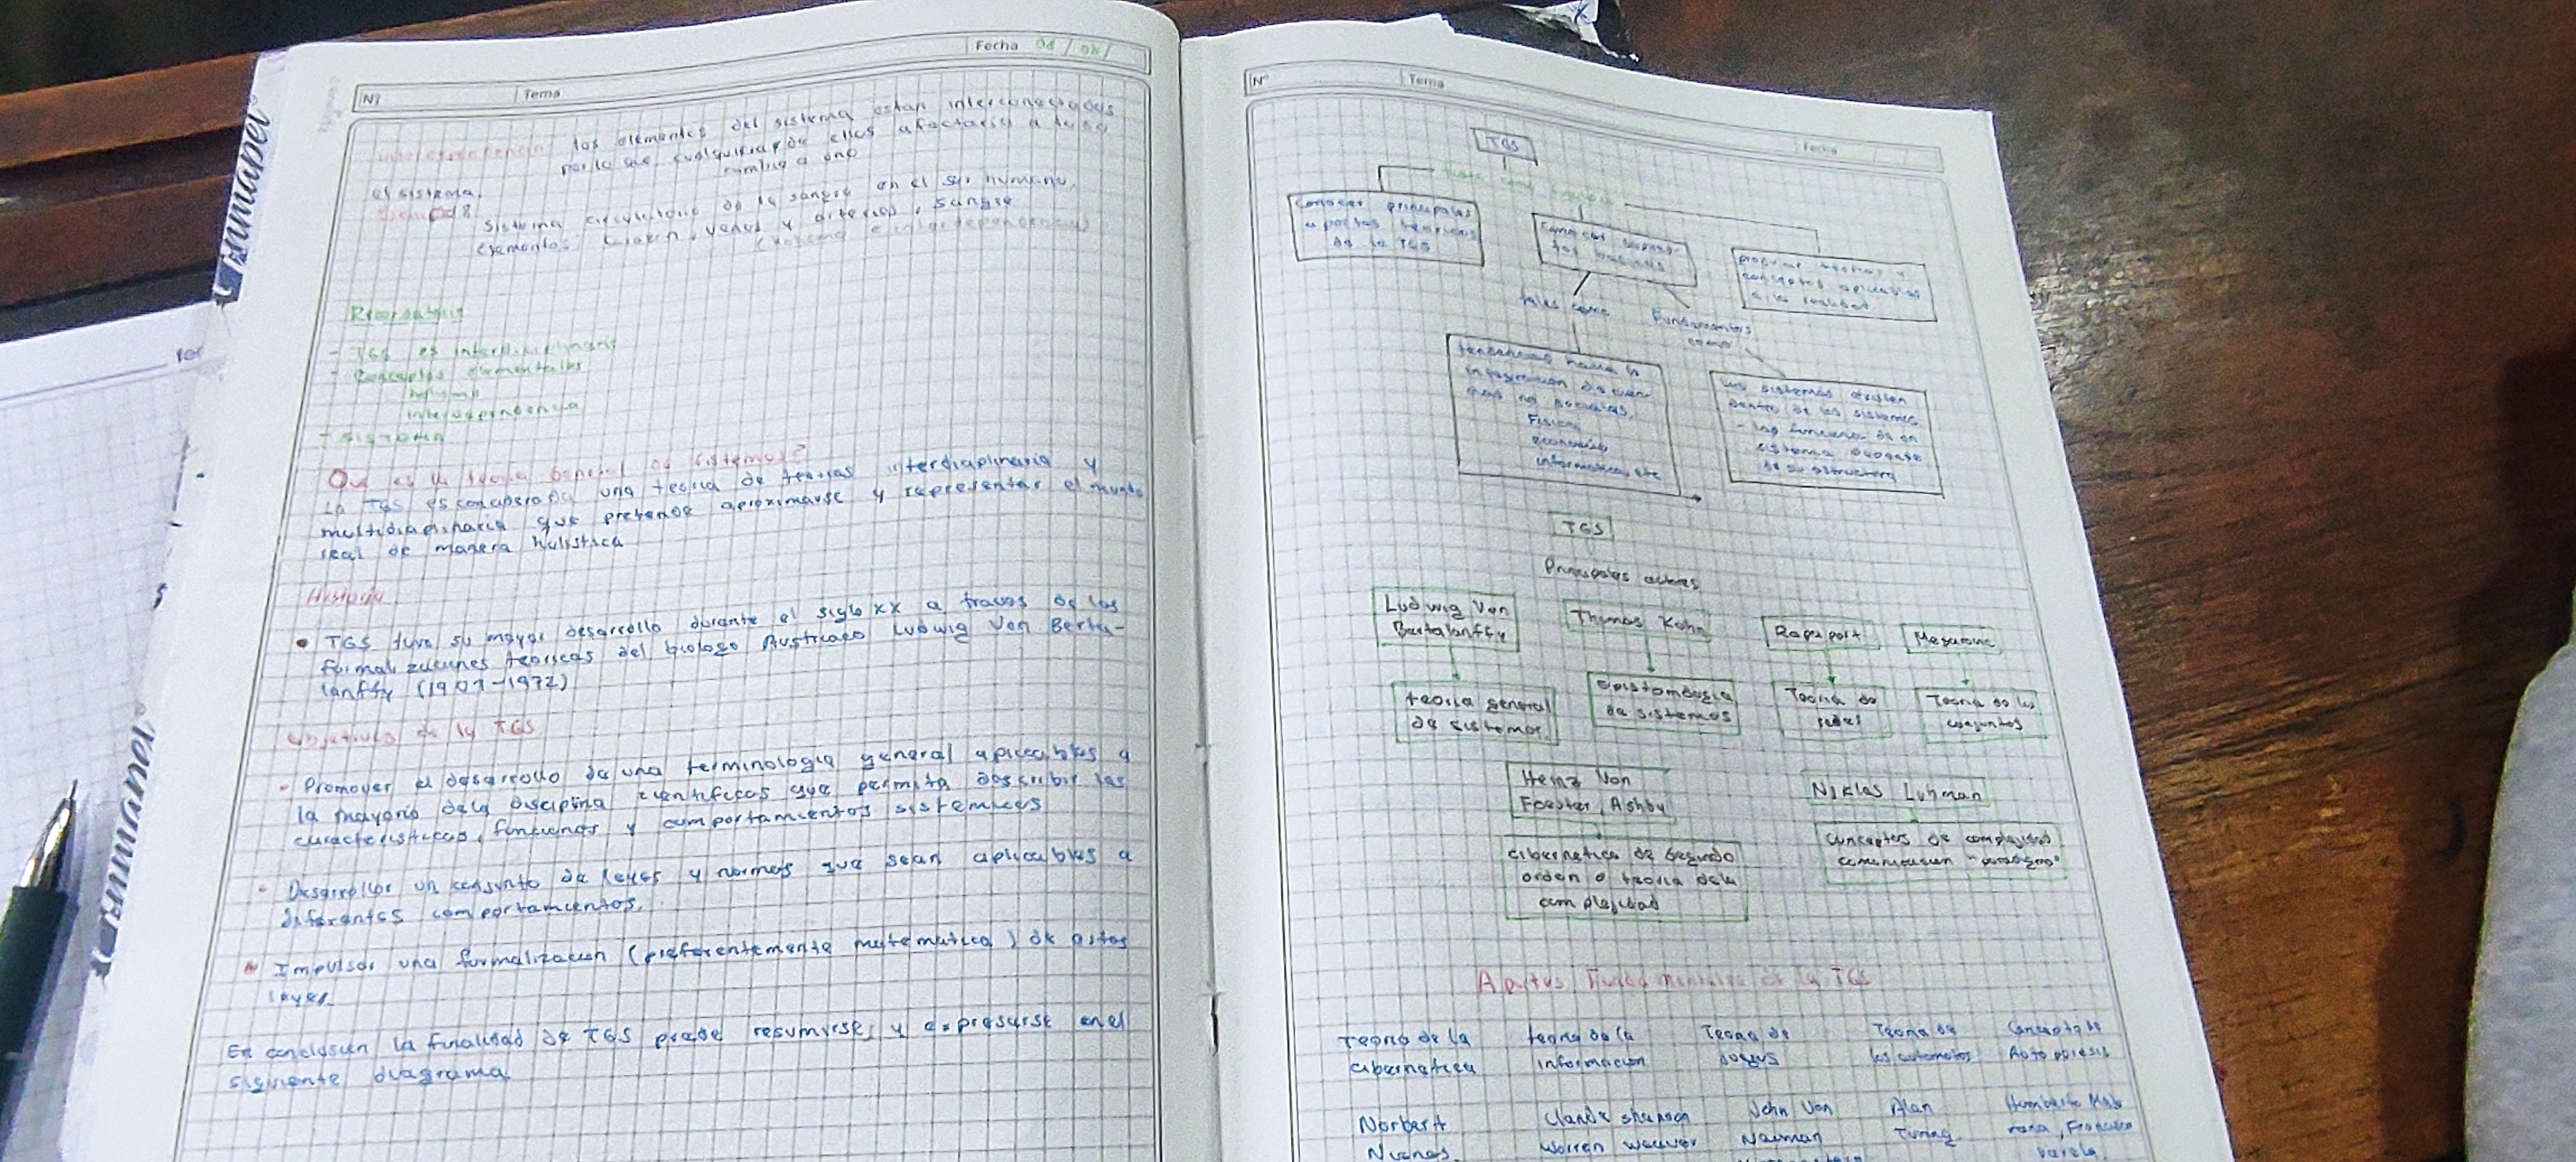 Fecha 04 / 06 /
N°
Tema
Interdependencia: los elementos del sistema estan interconectados
por lo que, cualquiera de ellos afectaria a todo
cambia a uno
el sistema.
Sistema circulatorio de la sangre en el ser humano,
elementos: corazon, venas y arterias, sangre
Remarcable
- TGS es interdisciplinaria
- Conceptos elementales
holismo
interdependencia
- SISTEMA
Que es la teoria general de sistemas?
La TGS es considerada una teoria de teorias interdiaplinaria y
multidiaplinaria que pretende aproximarse y representar el mundo
real de manera holistica
Historia
• TGS tuvo su mayor desarrollo durante el siglo XX a traves de las
formalizaciones teoricas del biologo Austriaco Ludwig Von Berta-
lanffy (1901-1972)
Objetivos de la TGS
- Promover el desarrollo de una terminologia general aplicables a
la mayoria dela disciplina cientificas que permita describir las
caracteristicas, funciones y comportamientos sistemicos
- Desarrollar un conjunto de leyes y normas que sean aplicables a
diferentes comportamientos.
- Impulsar una formalizacion (preferentemente matematica) de estas
leyes.
En conclusion la finalidad de TGS puede resumirse y expresarse en el
siguiente diagrama.
N°
Tema
Fecha
TGS
Conocer principales
aportes teoricos
de la TGS
Conocer
tos basicos
conceptos aplicables
a la realidad
tales como
Fundamentos
como
tendencias hacia la
integracion de cien-
cias no sociales,
Fisica,
economia,
informatica, etc
Los sistemas existen
dentro de los sistemas
- las funciones de un
sistema depende
de su estructura
TGS
Principales autores
Ludwig Von
Bertalanffy
Thomas Kohn
Rapaport
Mesarovic
teoria general
de sistemas
Epistomologia
de sistemas
Teoria de
redes
Teoria de los
conjuntos
Heinz Von
Foester, Ashby
Niklas Luhman
cibernetica de segundo
orden o teoria dela
complejidad
Conceptos de complejidad
comunicacion
Aportes Fundamentales de la TGS
Teoria de la
cibernetica
teoria de la
informacion
Teoria de
juegos
Teoria de
los automatas
Concepto de
Auto poiesis
Norbert
Claude Shannon
Warren Weaver
John Von
Nauman
Alan
Turing
Humberto Matu
rana, Francisco
Varela
Norma
Norma